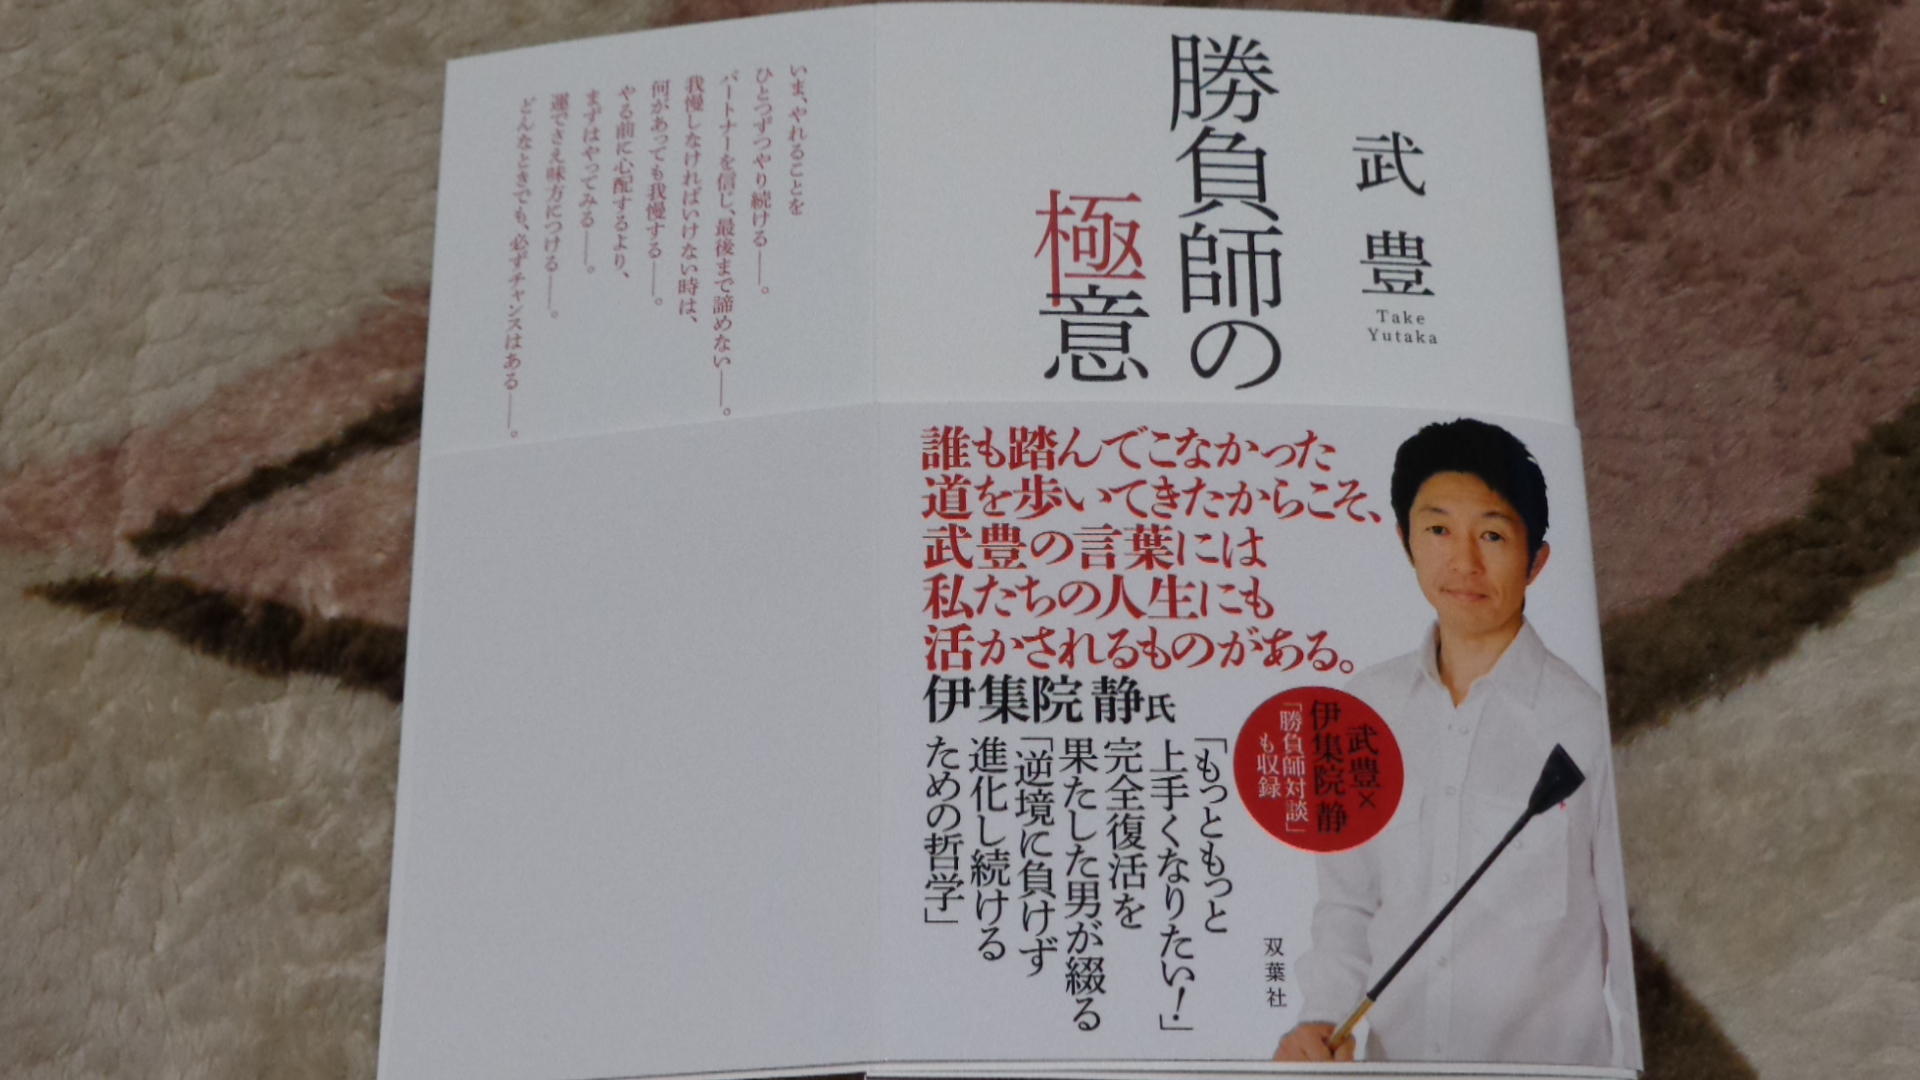 武 豊
Take
Yutaka
勝負師の
極意
誰も踏んでこなかった
道を歩いてきたからこそ、
武豊の言葉には
私たちの人生にも
活かされるものがある。
伊集院 静氏
武豊×
伊集院 静
「勝負師対談」
も収録
「もっともっと
上手くなりたい！」
完全復活を
果たした男が綴る
「逆境に負けず
進化し続ける
ための哲学」
双葉社
いま、やれることを
ひとつずつやり続ける──。
パートナーを信じ、最後まで諦めない──。
我慢しなければいけない時は、
何があっても我慢する──。
やる前に心配するより、
まずはやってみる──。
運でさえ味方につける──。
どんなときでも、必ずチャンスはある──。